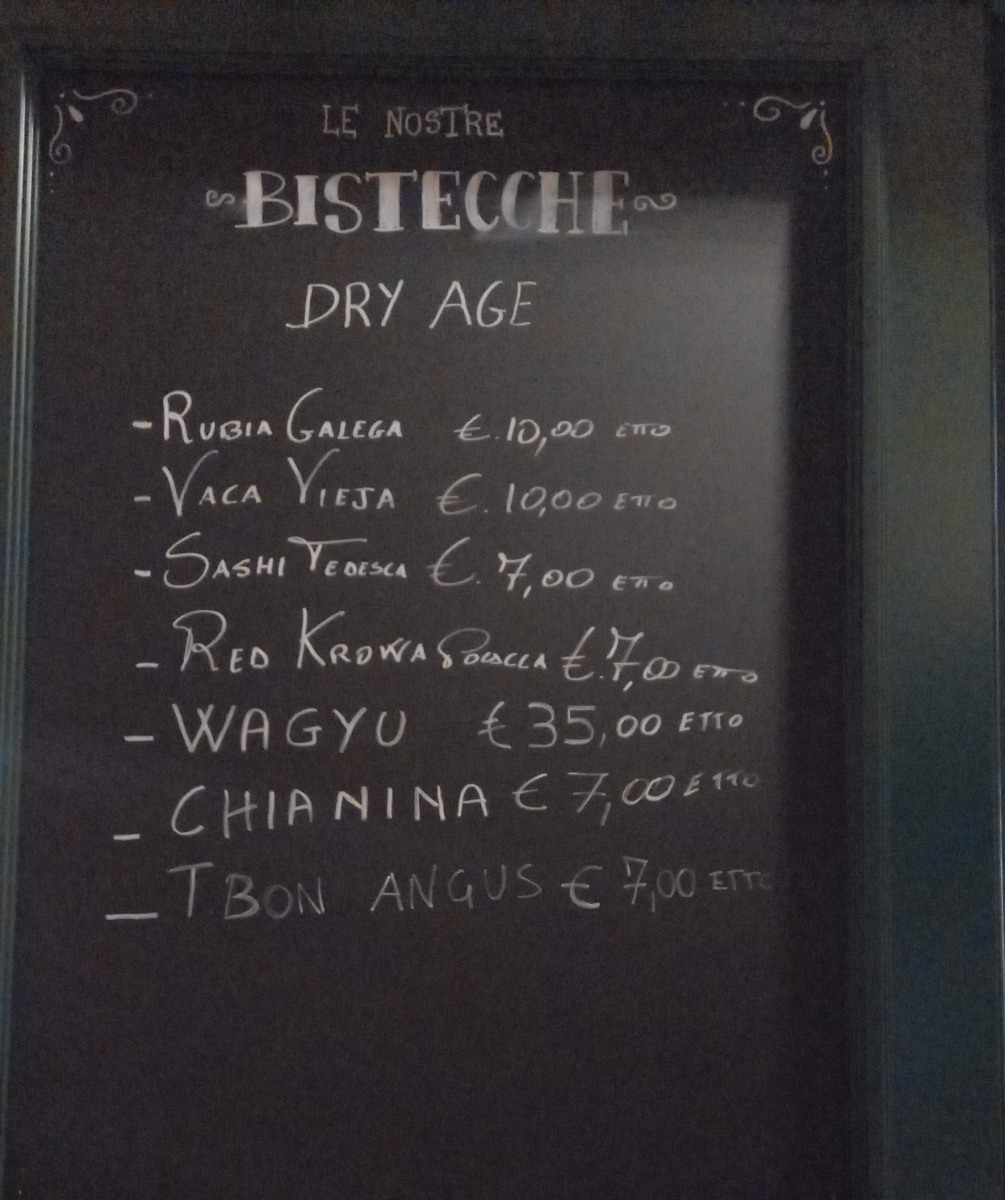 LE NOSTRE
BISTECCHE
DRY AGE
- RUBIA GALEGA €. 10,00 ETTO
- VACA VIEJA €. 10,00 ETTO
- SASHI TEDESCA €. 7,00 ETTO
- RED KROWA POLACCA €. 7,00 ETTO
- WAGYU € 35,00 ETTO
- CHIANINA € 7,00 ETTO
- T.BON ANGUS € 7,00 ETTO